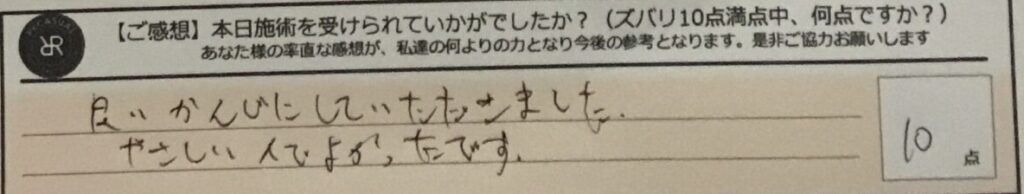 【ご感想】本日施術を受けられていかがでしたか？（ズバリ10点満点中、何点ですか？）
あなた様の率直な感想が、私達の何よりの力となり今後の参考となります。是非ご協力お願いします
良いかんじにしていただきました。
やさしい人でよかったです。
10点